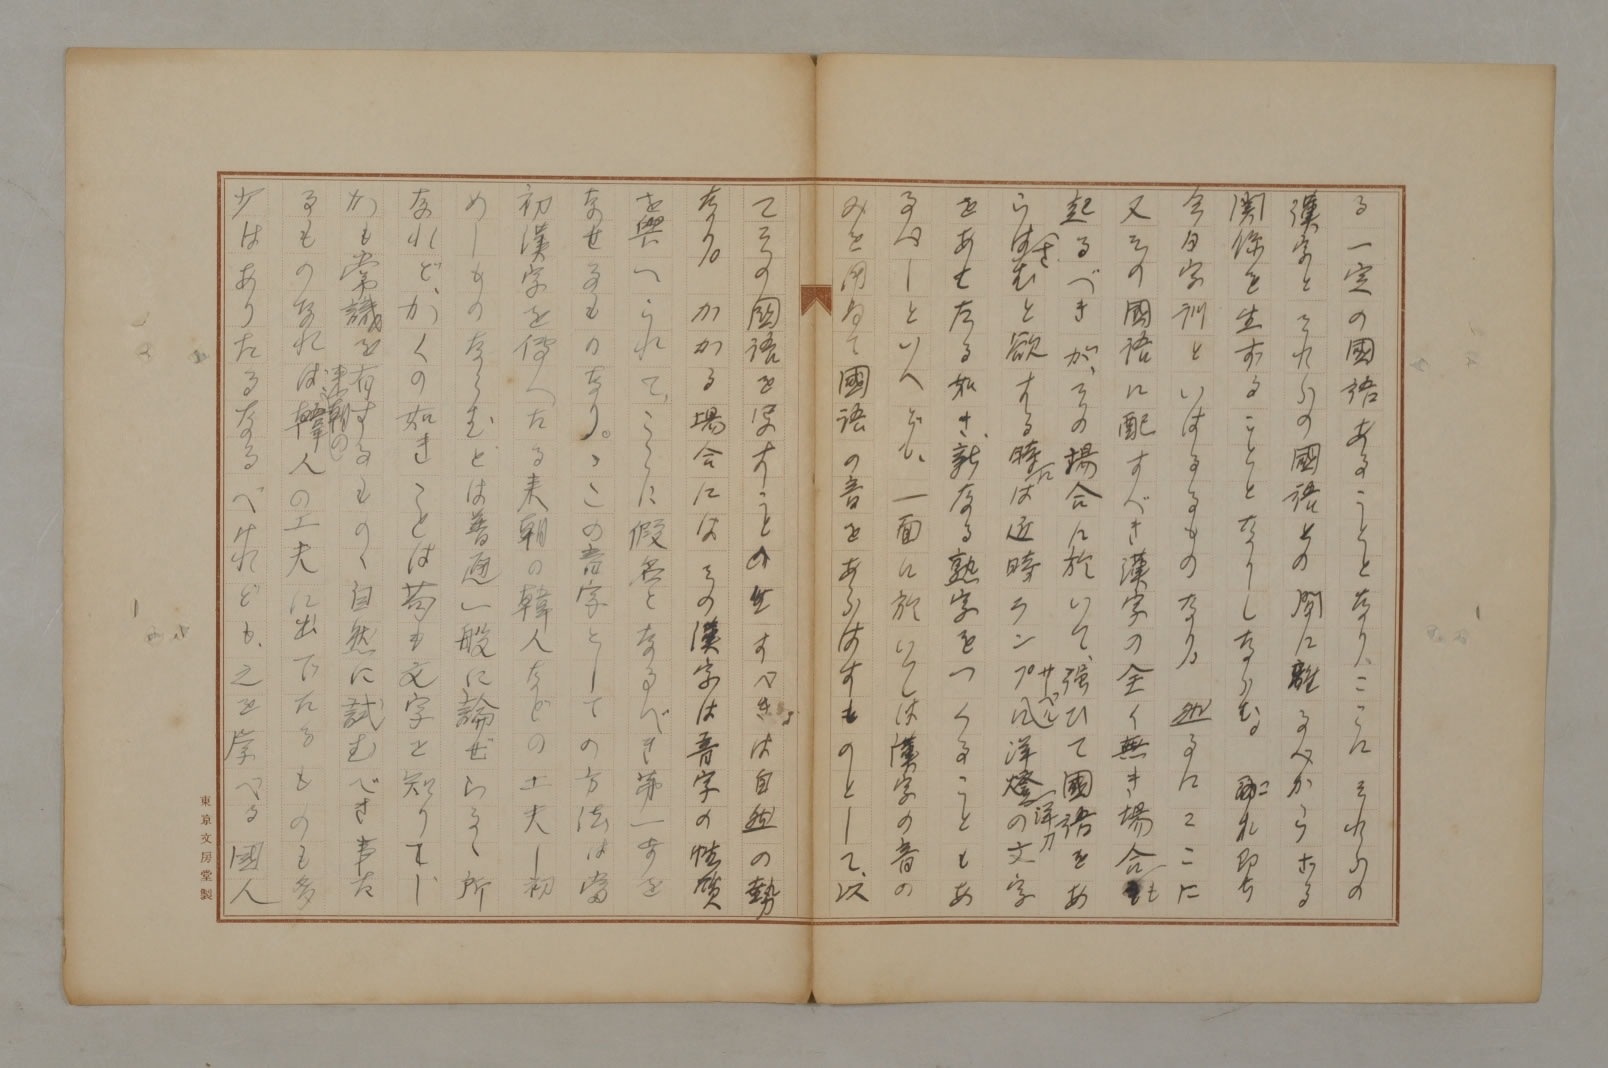 る一定の國語あることとなり、ここにそれらの
漢字とそれらの國語との間に離るべからざる
関係を生ずることとなりしならむ。これ即ち
今日字訓といはるるものなり。然るにここに
又その國語に配すべき漢字の全く無き場合も
起るべきが、その場合に於いて、强ひて國語をあ
らはさむと欲する時には近時ランプに洋燈
サーベルに洋刀
の文字
をあてたる如き、新なる熟字をつくることもあ
るべしといへども、一面に於いては漢字の音の
みを用ゐて國語の音をあらはすものとして、以
てその國語を写すことの生すべきは自然の勢
なり。かかる場合にはその漢字は音字の性質
を與へられて、ここに假名となるべき第一歩を
なせるものなり。この音字としての方法は當
初漢字を傳へたる来朝の韓人などの工夫し初
めしものならむとは普通一般に論ぜらるゝ所
なれど、かくの如きことは苟も文字を知り
かも常識を有するもの、自然に試むべき事た
るものなれば来朝の韓人の工夫に出でたるものも多
少はありたるなるべけれども、之を学べる國人
東京文房堂製